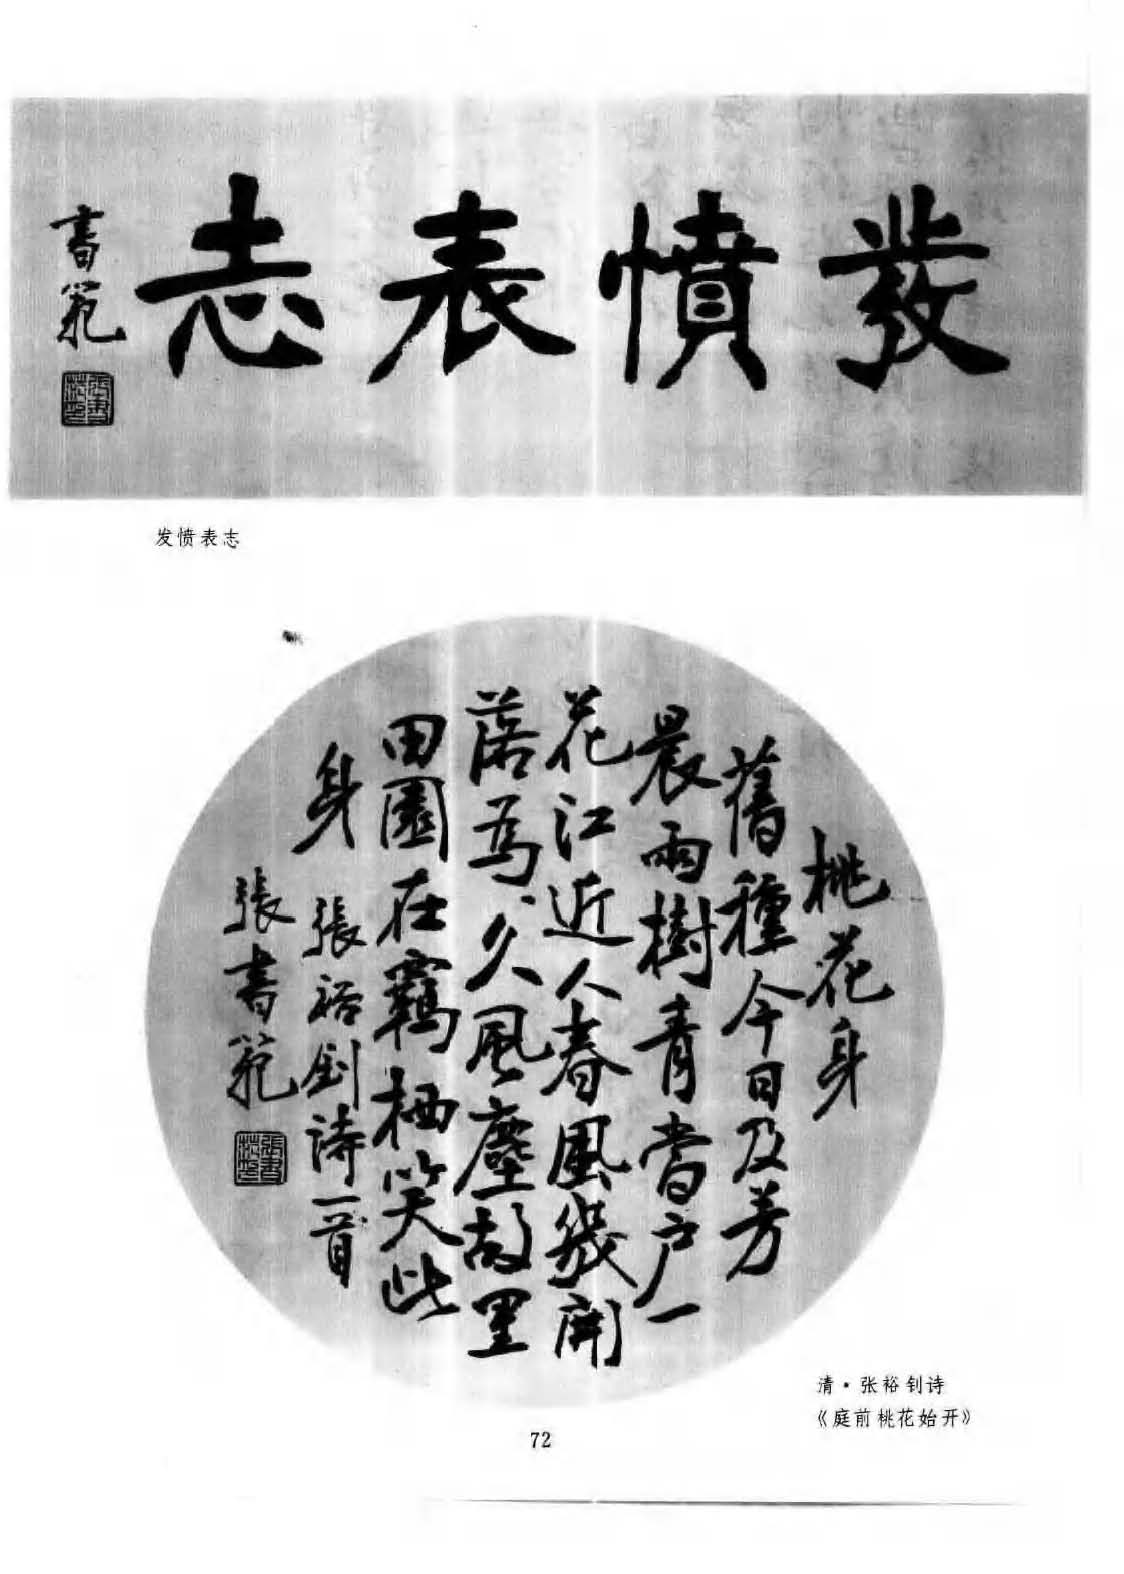 發憤表志
書範
張書範印
发愤表志
桃花身
舊種今日及芳
晨雨樹青當户一
花江近人春風幾開
落為久風塵故里
田園在羈栖笑此
身 張裕釗詩一首
張書範
張書範印
清·张裕钊诗
《庭前桃花始开》
72